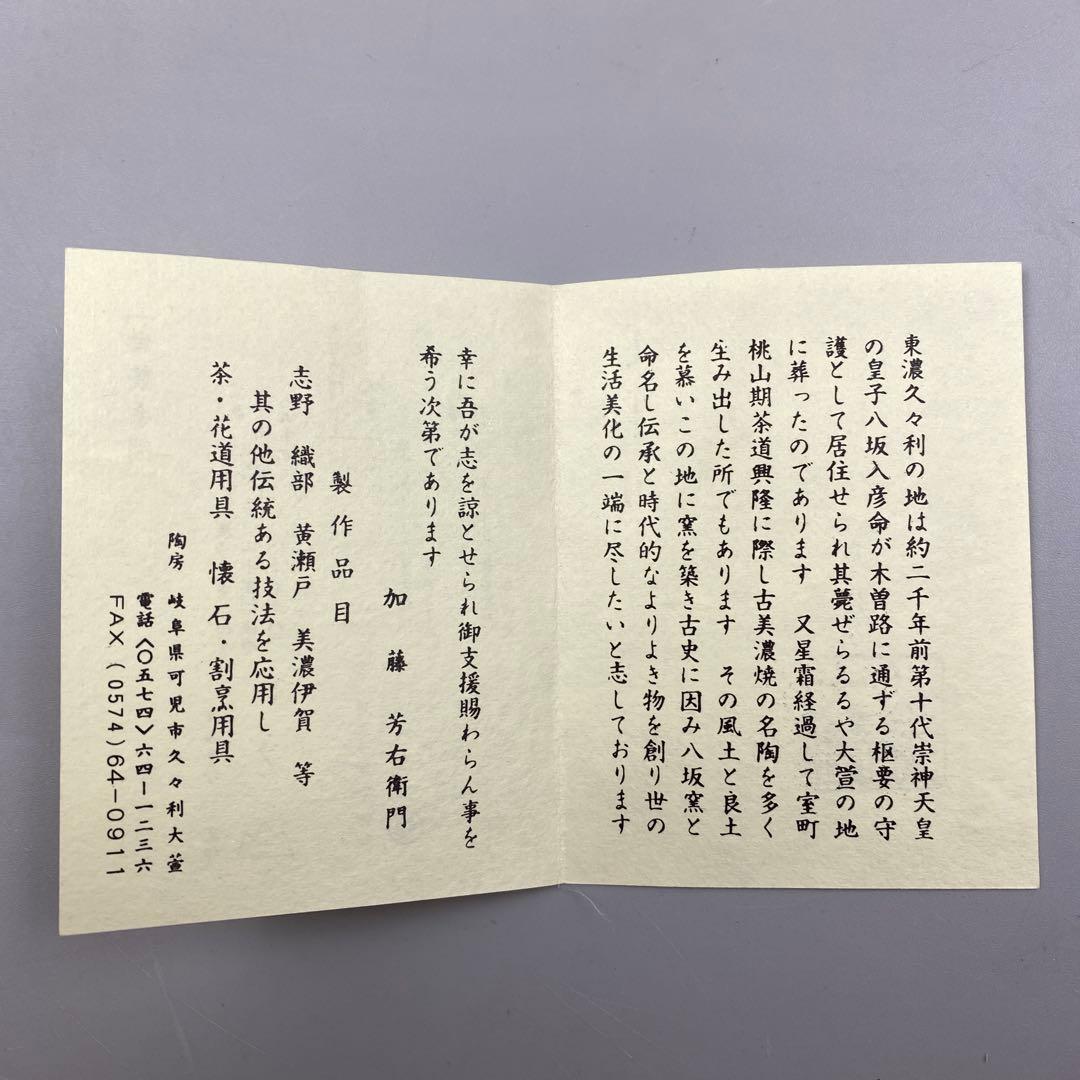 東濃久々利の地は約二千年前第十代崇神天皇
の皇子八坂入彦命が木曽路に通ずる枢要の守
護として居住せられ其薨ぜらるるや大萱の地
に葬ったのであります　又星霜経過して室町
桃山期茶道興隆に際し古美濃焼の名陶を多く
生み出した所でもあります　その風土と良土
を慕いこの地に窯を築き古史に因み八坂窯と
命名し伝承と時代的なよりよき物を創り世の
生活美化の一端に尽したいと志しております
幸に吾が志を諒とせられ御支援賜わらん事を
希う次第であります
加藤　芳右衛門
製作品目
志野　織部　黄瀬戸　美濃伊賀　等
其の他伝統ある技法を応用し
茶・花道用具　懐石・割烹用具
陶房　岐阜県可児市久々利大萱
電話〈〇五七四〉六四ー一二三六
FAX (0574)64-0911